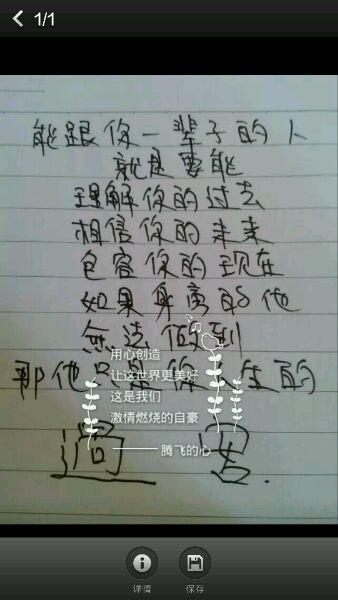 1/1
能跟你一辈子的人
就是要能
理解你的过去
相信你的未来
包容你的现在
如果身离的他
无法做到
那他只是你人生的
用心创造
让这世界更美好
这是我们
激情燃烧的自豪
腾飞的心
过客.
详情
保存